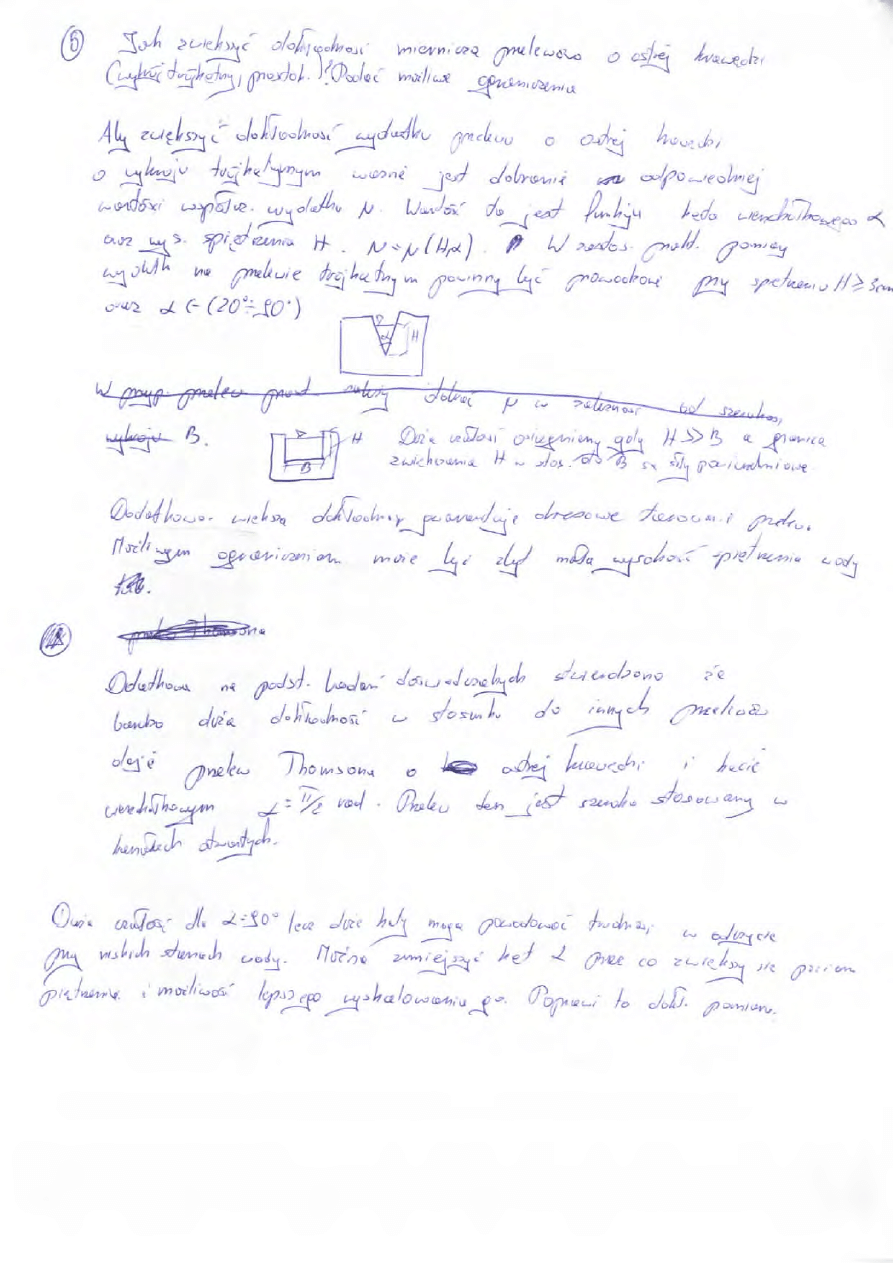 5 Jak zwiększyć dokładność miernicza przelewów o ostrej krawędzi
(wykrój trójkątny, prostok.)? Podać możliwe ograniczenia
Aby zwiększyć dokładność wydatku przelewu o ostrej krawędzi
o wykroju trójkątnym ważne jest dobranie odpowiedniej
wartości współcz. wydatku μ. Wartość ta jest funkcją kąta wierzchołkowego α
oraz wys. spiętrzenia H. μ=μ(H,α). W zastos. prakt. pomiary
wydatk na przelewie trójkątnym powinny być prowadzone przy spiętrzeniu H ≥ 5cm
oraz α ∈ (20°÷90°)
α H
W przyp. przelewu prost. należy dobrać μ w zależności od szerokości
wykroju B.
H B
Duża czułość osiągniemy gdy H >> B a granica
zwiększania H w stos. do B są siły powierzchniowe
Dodatkowo większą dokładność gwarantuje okresowe przelewu.
Możliwym ograniczeniem może być zbyt mała wysokość spiętrzenia wody
Thomsona
Dodatkowo na podst. badań doświadczalnych stwierdzono że
bardzo duża dokładność w stosunku do innych przelewów
daje przelew Thomsona o ostrej krawędzi i kącie
wierzchołkowym α = π/2 rad. Przelew ten jest szeroko stosowany w
kanałach otwartych.
Duża czułość dla α=90° lecz duże kąty mogą powodować trudności w odczycie
przy niskich stanach wody. Można zmniejszyć kąt α przez co zwiększy się poziom
piętrzenia i możliwość lepszego wyskalowania go. Poprawi to dokł. pomiaru.